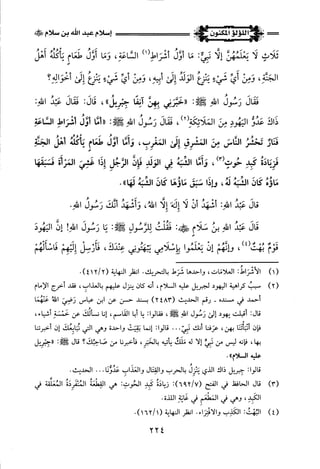 اللؤلؤ المكنون
إسلام عبد الله بن سلام
ثَلَاثٍ لَا يَعْلَمُهُنَّ إِلَّا نَبِيٌّ: مَا أَوَّلُ أَشْرَاطِ(١) السَّاعَةِ، وَمَا أَوَّلُ طَعَامٍ يَأْكُلُهُ أَهْلُ
الجَنَّةِ، وَمِنْ أَيِّ شَيْءٍ يَنْزِعُ الوَلَدُ إِلَى أَبِيهِ، وَمِنْ أَيِّ شَيْءٍ يَنْزِعُ إِلَى أَخْوَالِهِ؟
فَقَالَ رَسُولُ اللهِ ﷺ: «خَبَّرَنِي بِهِنَّ آنِفًا جِبْرِيلُ»، قَالَ: فَقَالَ عَبْدُ اللهِ:
ذَاكَ عَدُوُّ اليَهُودِ مِنَ المَلَائِكَةِ(٢)، فَقَالَ رَسُولُ اللهِ ﷺ: «أَمَّا أَوَّلُ أَشْرَاطِ السَّاعَةِ
فَنَارٌ تَحْشُرُ النَّاسَ مِنَ المَشْرِقِ إِلَى المَغْرِبِ، وَأَمَّا أَوَّلُ طَعَامٍ يَأْكُلُهُ أَهْلُ الجَنَّةِ
فَزِيَادَةُ كَبِدِ حُوتٍ(٣)، وَأَمَّا الشَّبَهُ فِي الوَلَدِ فَإِنَّ الرَّجُلَ إِذَا غَشِيَ المَرْأَةَ فَسَبَقَهَا
مَاؤُهُ كَانَ الشَّبَهُ لَهُ، وَإِذَا سَبَقَ مَاؤُهَا كَانَ الشَّبَهُ لَهَا».
قَالَ عَبْدُ اللهِ: أَشْهَدُ أَنْ لَا إِلَهَ إِلَّا اللهُ، وَأَشْهَدُ أَنَّكَ رَسُولُ اللهِ.
قَالَ عَبْدُ اللهِ بنُ سَلَامٍ: فَقُلْتُ لِلرَّسُولِ ﷺ: يَا رَسُولَ اللهِ! إِنَّ اليَهُودَ
قَوْمٌ بُهُتٌ(٤)، وَإِنَّهُمْ إِنْ يَعْلَمُوا بِإِسْلَامِي يَبْهَتُونِي عِنْدَكَ، فَأَرْسِلْ إِلَيْهِمْ فَاسْأَلْهُمْ
(١) الأَشْرَاطُ: العلامات، واحدها شَرَط بالتحريك. انظر النهاية (٤١٢/٢).
(٢) سببُ كراهية اليهود لجبريل عليه السلام، أنه كان ينزل عليهم بالعذاب، فقد أخرج الإمام
أحمد في مسنده ـ رقم الحديث (٢٤٨٣) بسند حسن عن ابن عباس رَضِيَ اللهُ عَنْهُمَا
قال: أقبلت يهود إلى رَسُولِ اللهِ ﷺ، فقالوا: يا أبا القاسم، إنا نسألك عن خَمْسَةِ أشياء،
فإن أنبأتنا بهن، عرفنا أنك نبيّ... قالوا: إنما بَقِيَتْ واحدة وهي التي نُبَايِعُكَ إن أخبرتنا
بها، فإنه ليس من نبيٍّ إلا له مَلَكٌ يأتيه بالخَبَرِ، فأخبرنا من صَاحِبُكَ؟ قال ﷺ: «جِبْرِيلُ
عليه السلام».
قالوا: جبريل ذاك الذي يَنْزِلُ بالحرب والقتال والعذاب عَدُوُّنَا... الحديث.
(٣) قال الحافظ في الفتح (٦٩٢/٧): زيادَةُ كَبِدِ الحوت: هي القِطْعَةُ المُنْفَرِدَةُ المُعَلَّقَة في
الكَبِدِ، وهي في المَطْعَمِ في غايَةِ اللذة.
(٤) البُهْتُ: الكذب والافتراء. انظر النهاية (١٦٢/١).
٢٢٤